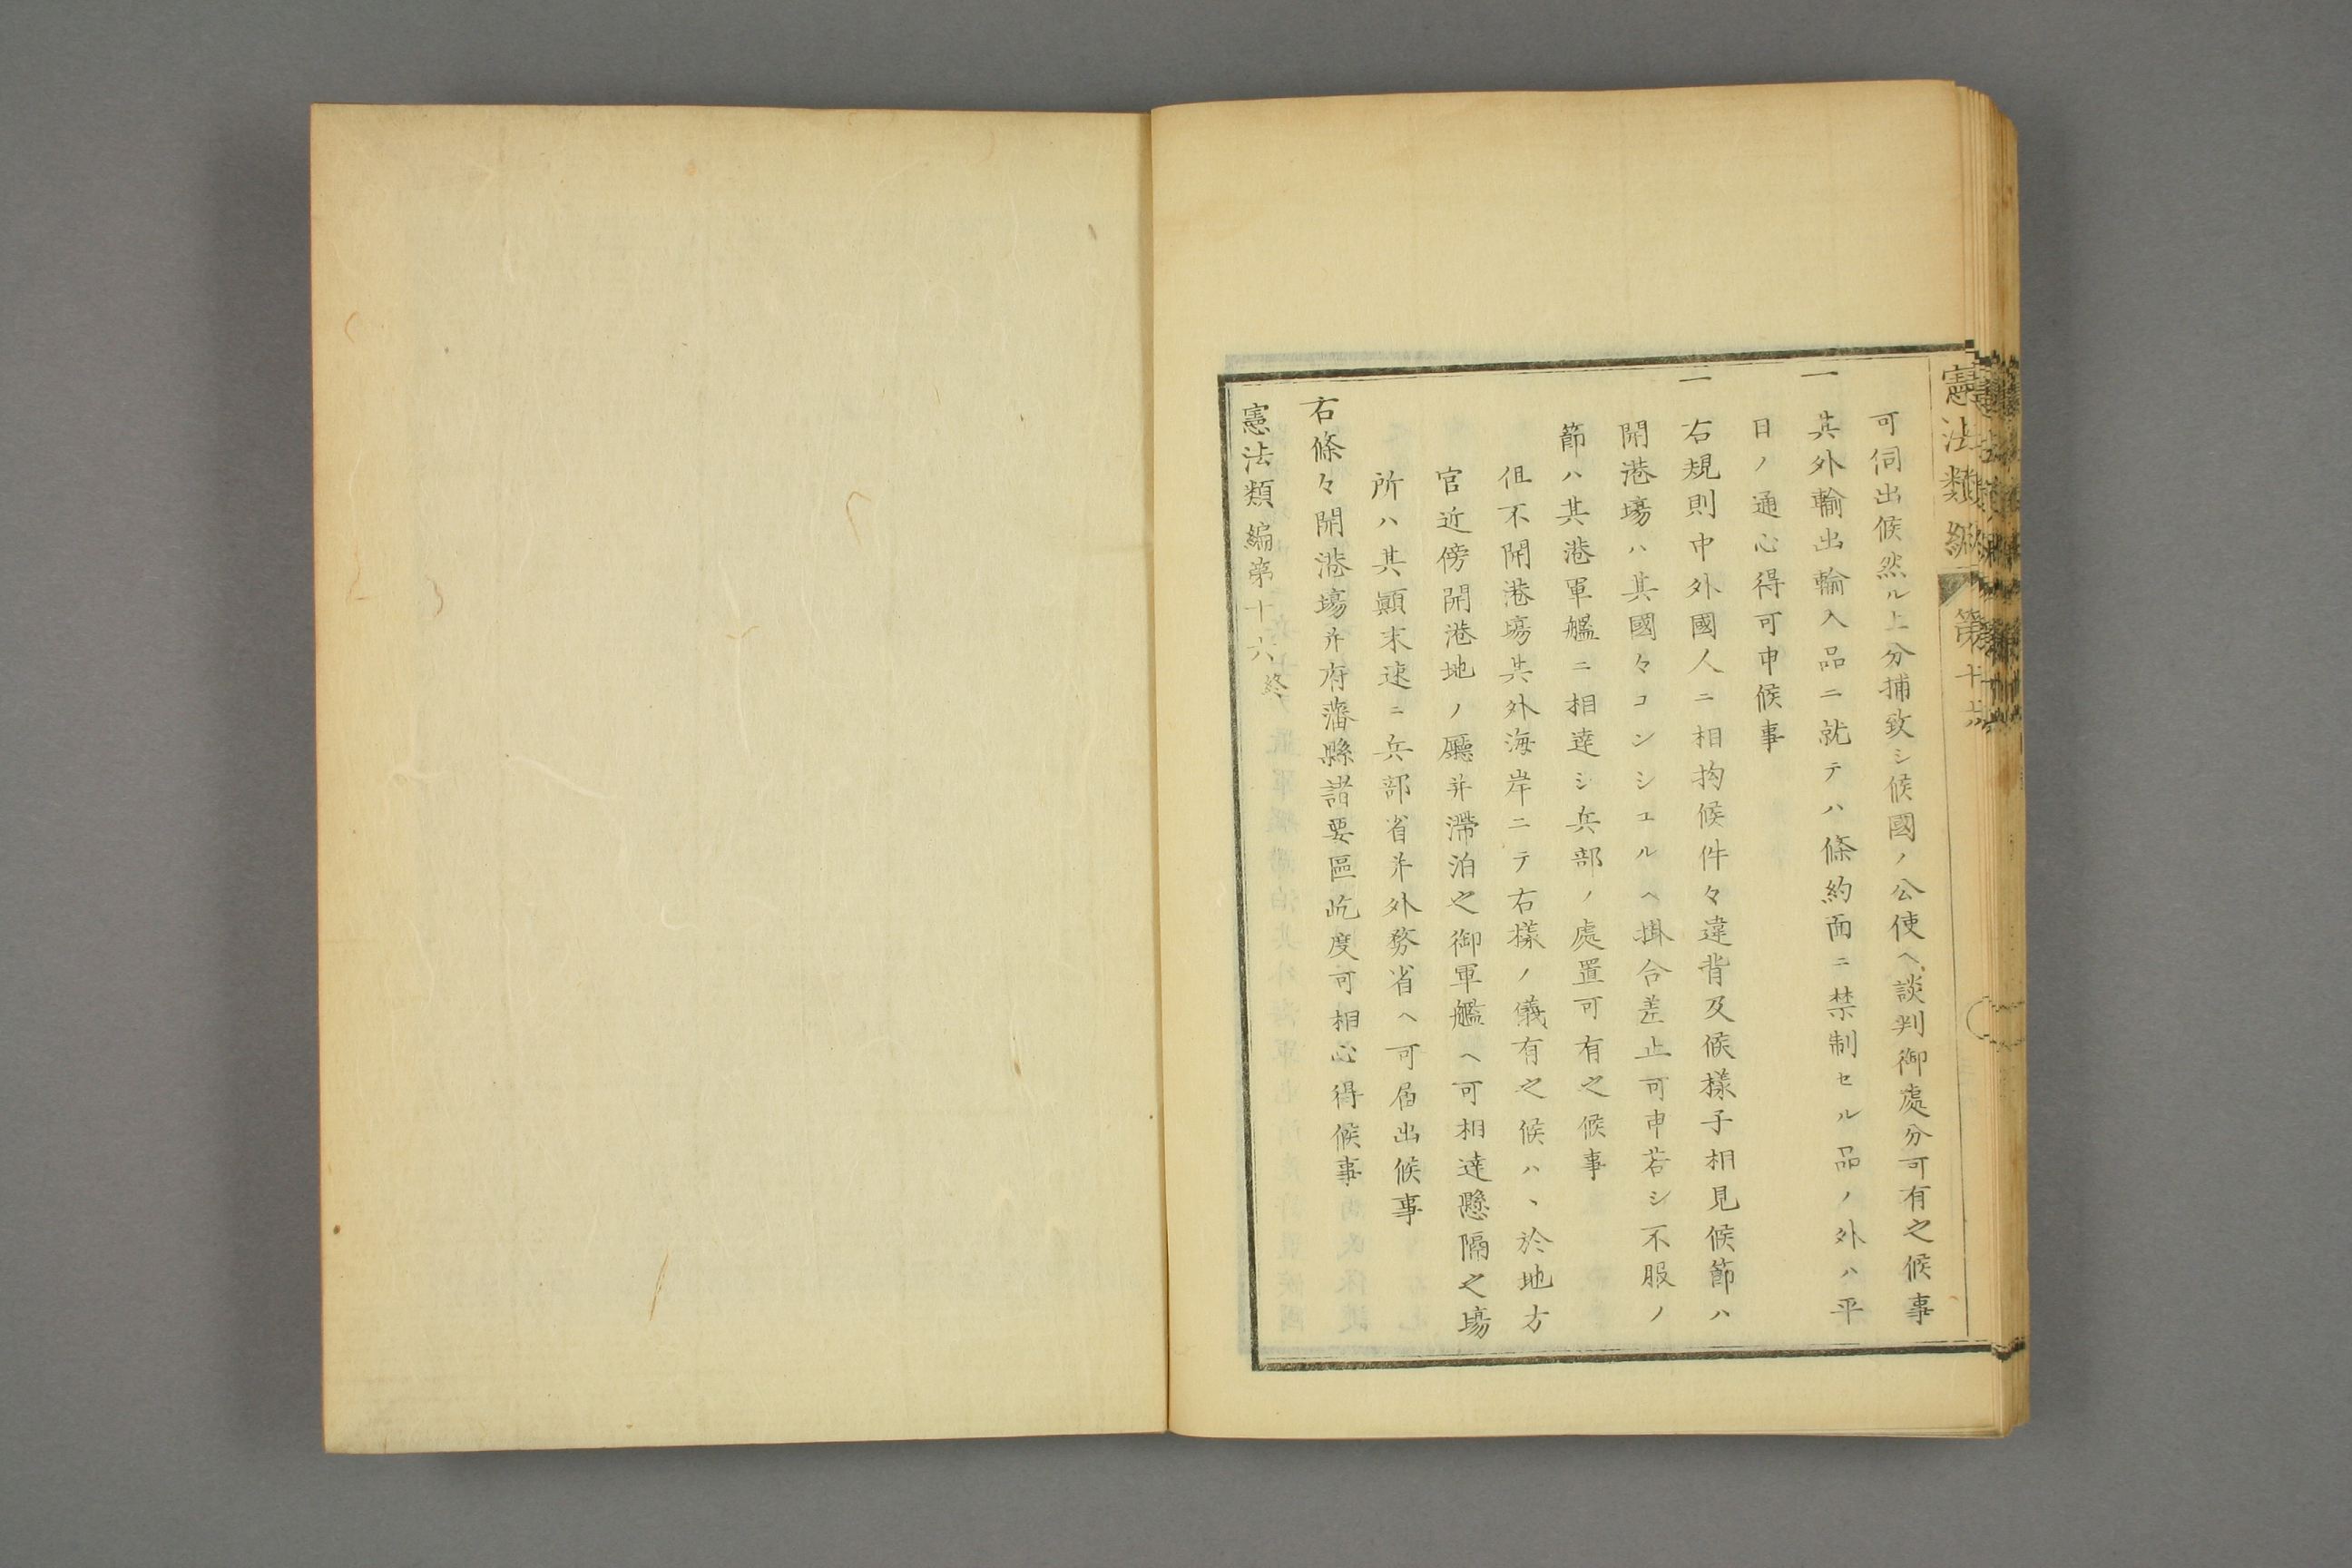 憲法類編 第十六
可伺出候然ル上分捕致シ候國ノ公使ヘ談判御處分可有之候事
一其外輸出輸入品ニ就テハ條約面ニ禁制セル品ノ外ハ平
日ノ通心得可申候事
一右規則中外國人ニ相拘候件々違背及候樣子相見候節ハ
開港場ハ其國々コンシユルヘ掛合差止可申若シ不服ノ
節ハ其港軍艦ニ相達シ兵部ノ處置可有之候事
但不開港場其外海岸ニテ右樣ノ儀有之候ハヽ於地方
官近傍開港地ノ廳并滯泊之御軍艦ヘ可相達懸隔之場
所ハ其顚末速ニ兵部省并外務省ヘ可屆出候事
右條々開港場并府藩縣諸要區屹度可相心得候事
憲法類編第十六終